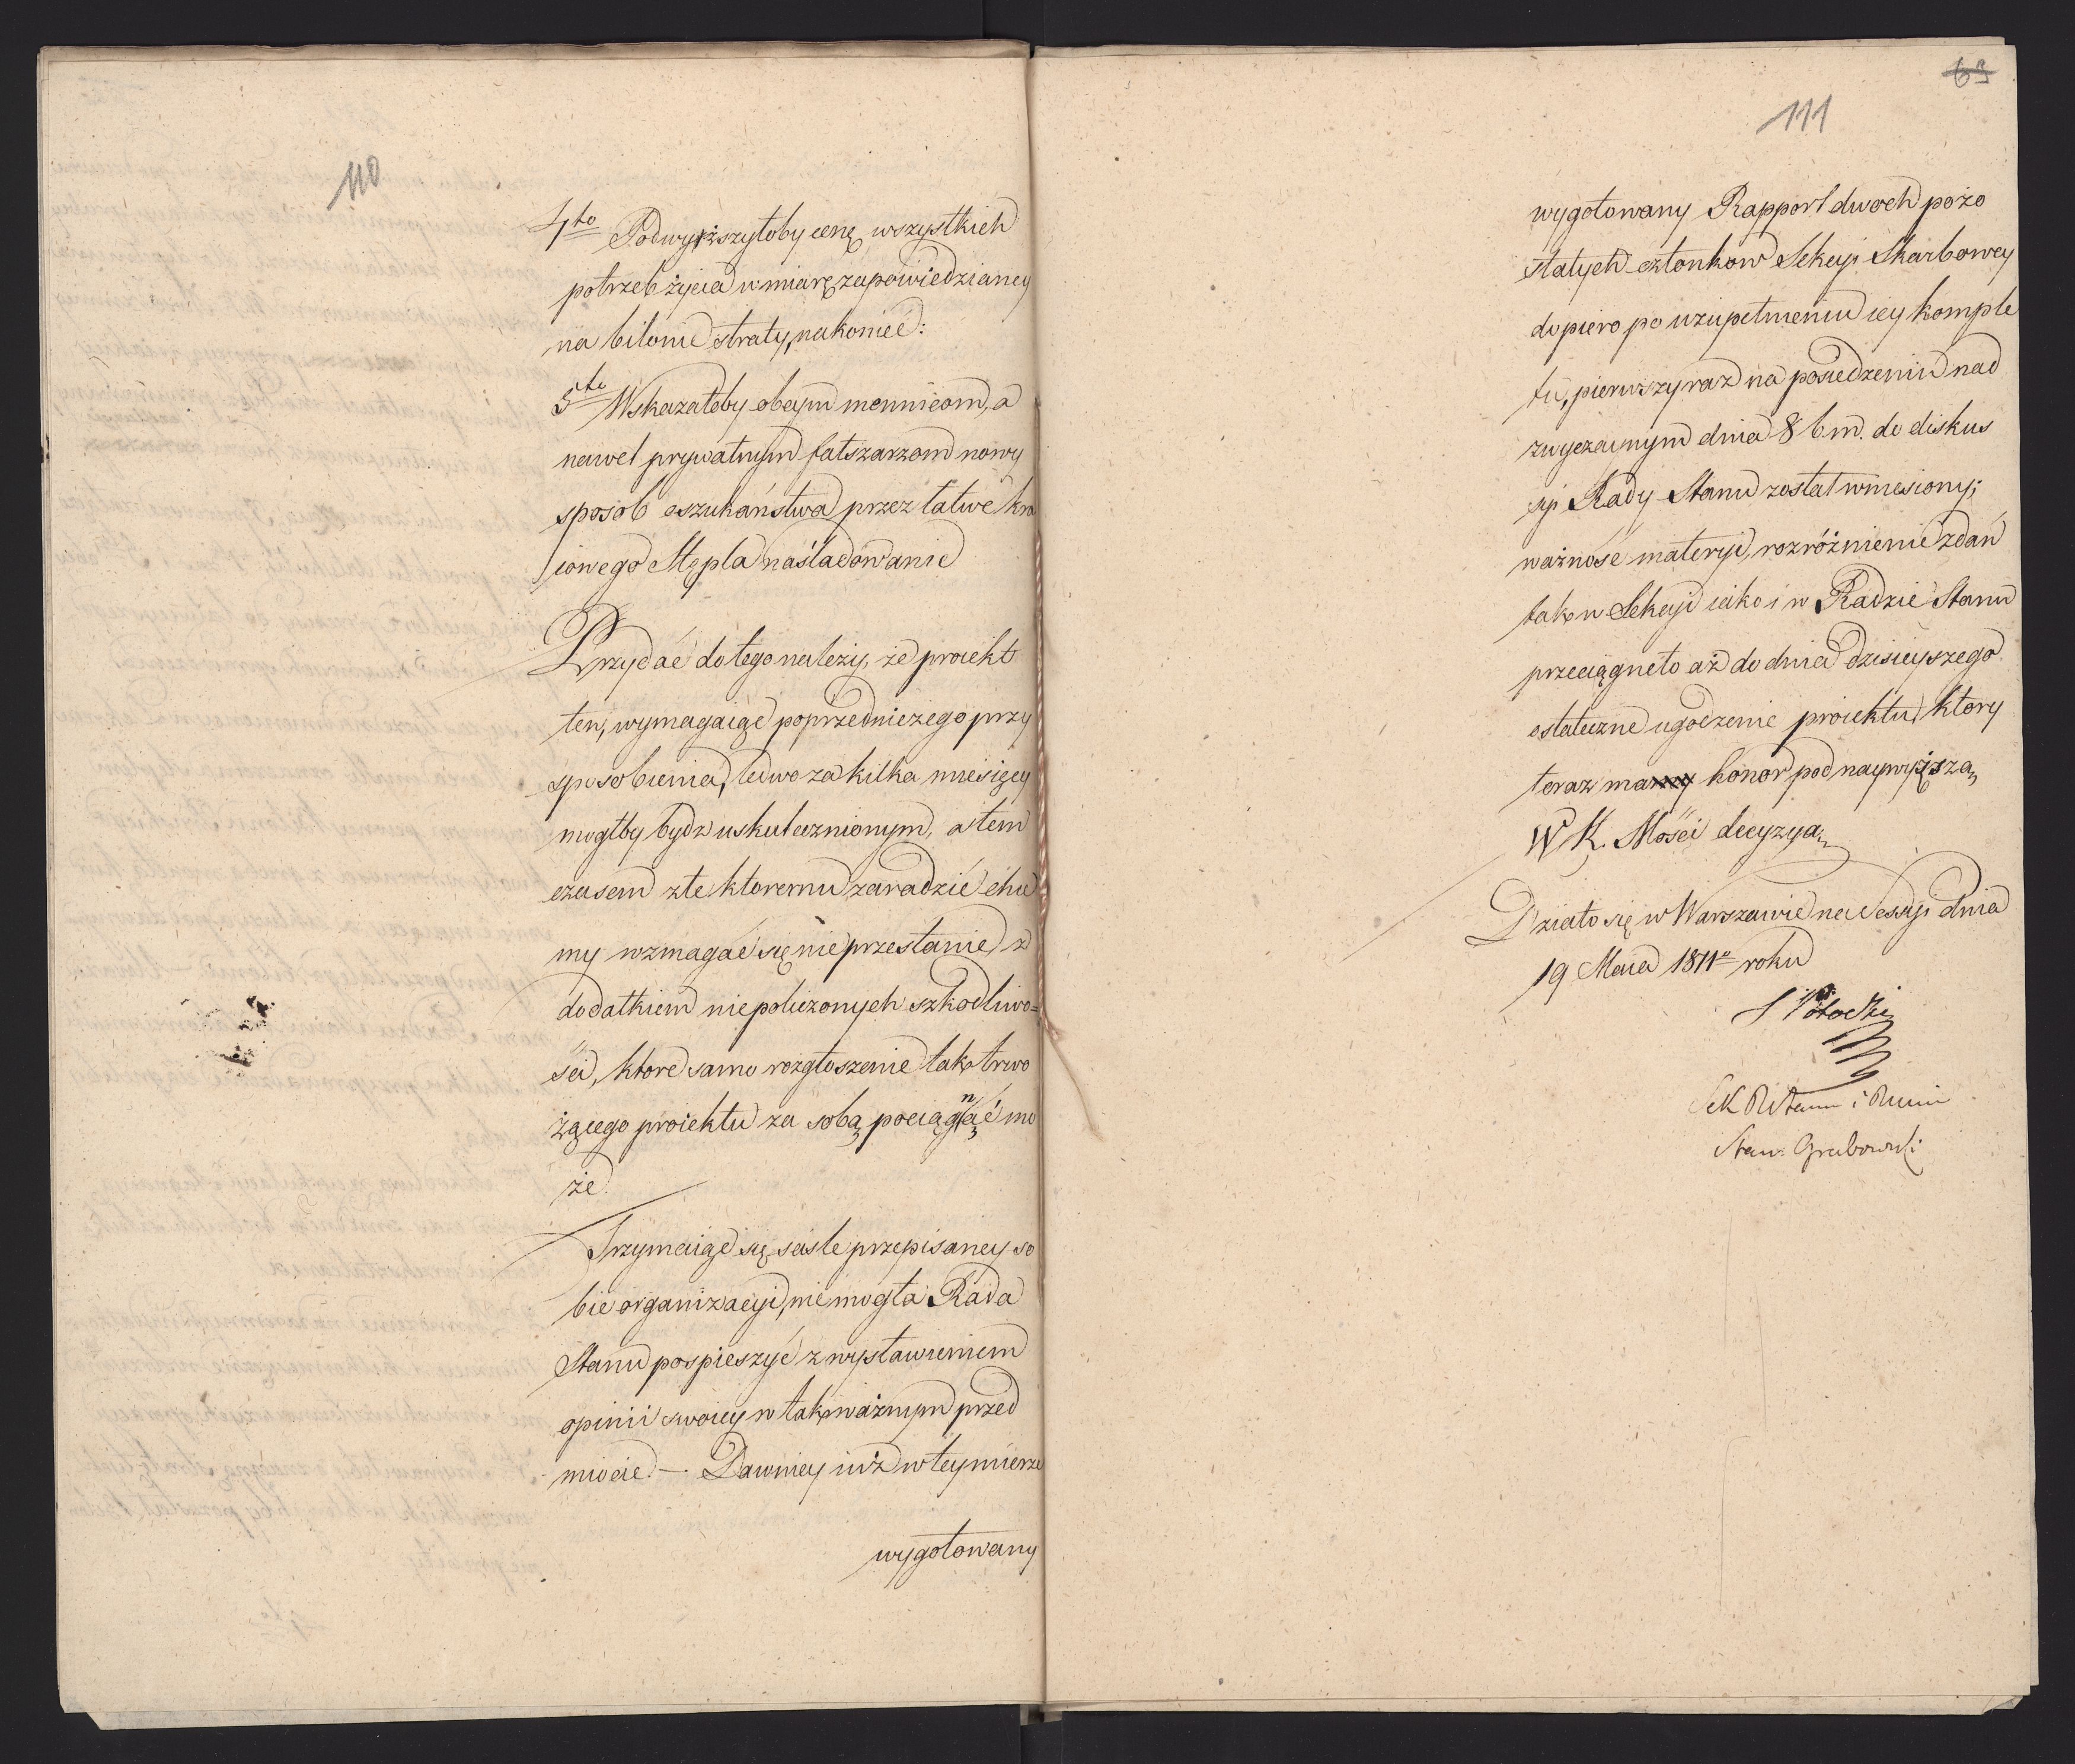 110
4to Podwyższyłoby cenę wszystkich
potrzeb życia w miarę zapowiedzianey
na bilonie straty, nakoniec:
5to Wskazałoby obcym mennicom, a
nawet prywatnym fałszarzom nowy
sposób oszukaństwa przez łatwe kra
iowego Stępla naśladowanie
Przydać do tego należy, że proiekt
ten, wymagaiąc poprzedniczego przy
sposobienia, ledwo za kilka miesięcy
mogłby bydz uskutecznionym, a tem
czasem złe ktoremu zaradzić chce
my wzmagać się nie przestanie, z
dodatkiem niepoliczonych szkodliwo=
ści, ktore samo rozgłoszenie tak trwo
żącego proiektu za sobą pociągnąć mo
że.
Trzymaiąc się ściśle przepisaney so
bie organizacyi, nie mogła Rada
Stanu pospieszyć z wystawieniem
opinii swoiey w tak ważnym przed
miocie. — Dawniey iuż w tey mierze
wygotowany
69
111
wygotowany Rapport dwoch pozo
stałych członkow Sekcyi Skarbowey
dopiero po uzupełnieniu iey komple
tu, pierwszy raz na posiedzeniu nad
zwyczaynym dnia 8 b m. do diskus
syi Rady Stanu został wniesiony;
ważność materyi, rozróżnienie zdań
tak w Sekcyi iako i w Radzie Stanu
przeciągneło aż do dnia dzisieyszego
ostateczne ugodzenie proiektu, ktory
teraz ma honor pod naywyższą
W K. Mości decyzyą
Działo się w Warszawie na Sessyi dnia
19 Maia 1811o roku
S Potocki
Sek R Stanu i
Stan: Grabowski